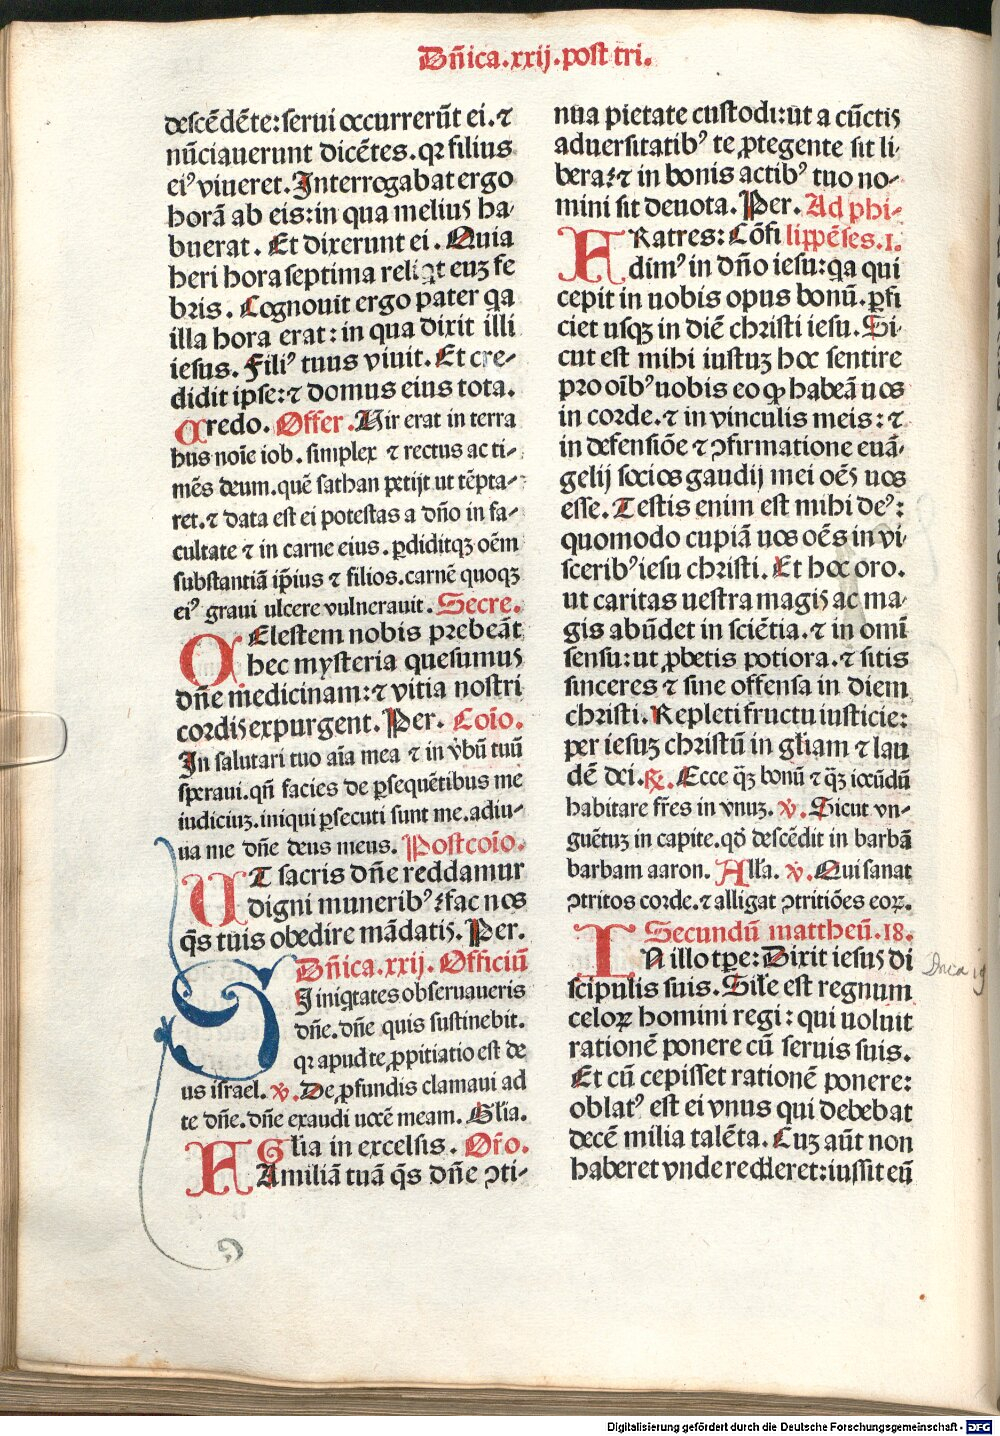 Dñica.xxij.post tri.
descēdēte:serui occurrerūt ei.⁊
nūciauerunt dicētes.qꝛ filius
eiꝰ viueret.Interrogabat ergo
horā ab eis:in qua melius ha-
buerat. Et dixerunt ei. Quia
heri hora septima reliqt euꝫ fe
bris. Cognouit ergo pater qa
illa hora erat:in qua dixit illi
iesus. Filiꝰ tuus viuit. Et cre-
didit ipse:⁊ domus eius tota.
Credo. Offer. Vir erat in terra
hus noīe iob. simplex ⁊ rectus ac ti-
mēs deum.quē sathan petijt ut tēpta-
ret.⁊ data est ei potestas a dño in fa-
cultate ⁊ in carne eius.ꝑdiditqꝫ oēm
substantiā ip̄ius ⁊ filios.carnē quoqꝫ
eiꝰ graui ulcere vulnerauit. Secre.
CElestem nobis prebeāt
hec mysteria quesumus
dñe medicinam:⁊ vitia nostri
cordis expurgent. Per. Coīo.
In salutari tuo aīa mea ⁊ in v̄bū tuū
speraui.qñ facies de ꝑsequētibus me
iudiciuꝫ.iniqui ꝑsecuti sunt me.adiu-
ua me dñe deus meus. Postcoīo.
UT sacris dñe reddamur
digni muneribꝰ:fac nos
q̄s tuis obedire mādatis. Per.
Dñica.xxij. Officiū
SI iniqtates obseruaueris
dñe.dñe quis sustinebit.
qꝛ apud te ꝓpitiatio est de
us israel. v̄. De ꝓfundis clamaui ad
te dñe.dñe exaudi uocē meam. Glīa.
Glīa in excelsis. Or̄o.
FAmiliā tuā q̄s dñe ꝯti-
nua pietate custodi:ut a cūctis
aduersitatibꝰ te ꝓtegente sit li-
bera:⁊ in bonis actibꝰ tuo no-
mini sit deuota. Per. Ad phi-
FRatres: Cōfi lippēses.1.
dimꝰ in dño iesu:qa qui
cepit in uobis opus bonū.ꝑfi
ciet usqꝫ in diē christi iesu. Si-
cut est mihi iustuꝫ hoc sentire
pro oībꝰ uobis eo ꝙ habeā uos
in corde.⁊ in vinculis meis:⁊
in defensiōe ⁊ ꝯfirmatione euā-
gelij socios gaudij mei oēs uos
esse. Testis enim est mihi deꝰ:
quomodo cupiā uos oēs in vi-
sceribꝰ iesu christi. Et hoc oro.
ut caritas uestra magis ac ma-
gis abūdet in sciētia.⁊ in omī
sensu:ut ꝓbetis potiora.⁊ sitis
sinceres ⁊ sine offensa in diem
christi. Repleti fructu iusticie:
per iesuꝫ christū in glīam ⁊ lau
dē dei. ℟. Ecce q̄ꝫ bonū ⁊ q̄ꝫ iocūdū
habitare fr̄es in vnuꝫ. v̄. Sicut vn-
guētuꝫ in capite.qd̄ descēdit in barbā
barbam aaron. Allā. v̄. Qui sanat
ꝯtritos corde.⁊ alligat ꝯtritiōes eoꝝ.
Secundū mattheū.18.
IN illo tꝑe: Dixit iesus di
scipulis suis. Sīle est regnum
celoꝝ homini regi:qui uoluit
rationē ponere cū seruis suis.
Et cū cepisset rationē ponere:
oblatꝰ est ei vnus qui debebat
decē milia talēta. Cuꝫ aūt non
haberet vnde redderet:iussit eū
G
Digitalisierung gefördert durch die Deutsche Forschungsgemeinschaft - DFG